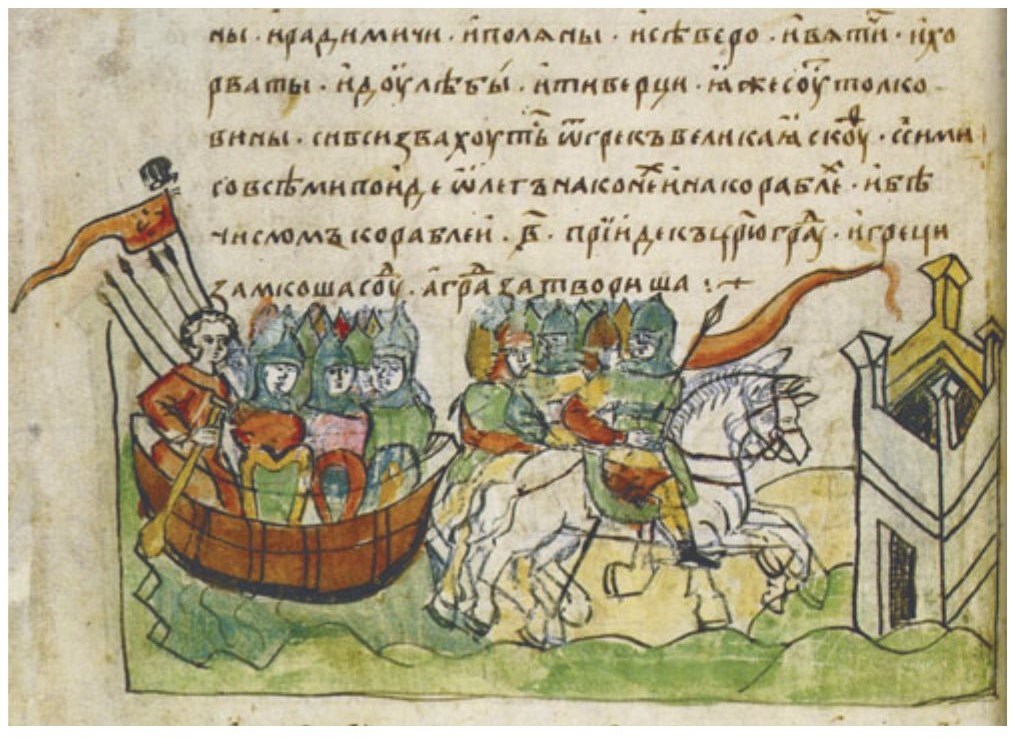 ны · ирадимичи · иполѧны · исѣверо · ивѧтич҃и · ихо
рваты · идоулѣбы · итиверци · ꙗжесоу҃толко
вины · сивсизвахоутьс̑ ѿгрекъвеликаꙗ скоу҃ⷴ · ссими
совсѣмипоиде ѡлегънаконеⷯинакораблеⷯ · ибѣ
числомъкораблеи · в҃ · прїидекъцр҃югра҃ⷣ · игреци
замкошасоуⷣ · аграⷣзатвориша :·